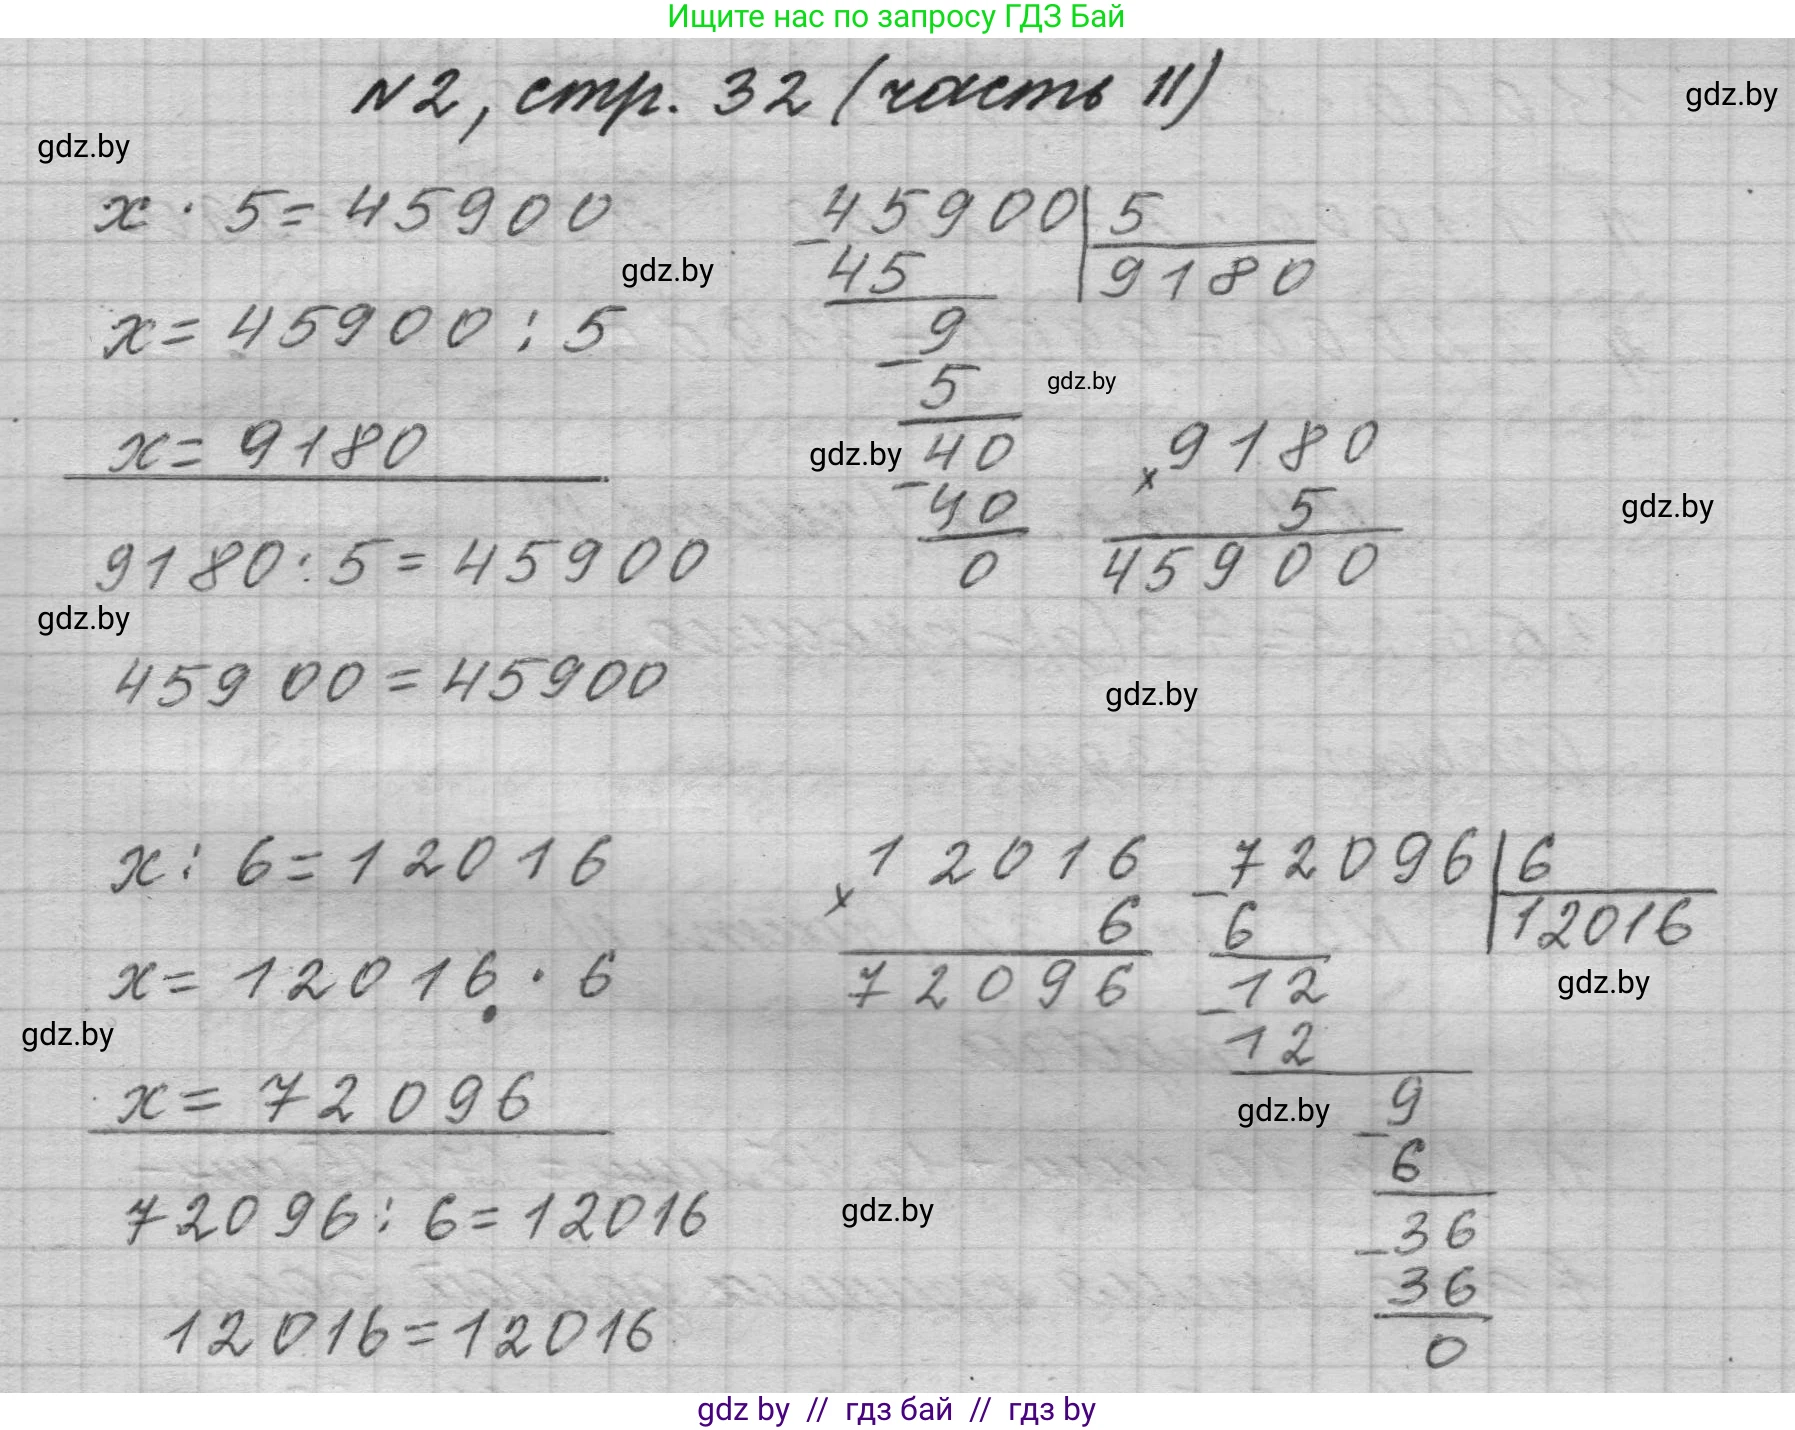 Ищите нас по запросу ГДЗ Бай
N2, стр. 32 (часть II)
gdz.by
gdz.by
x · 5 = 45900
45900 | 5
− 45
9180
gdz.by
x = 45900 : 5
9
− 5
gdz.by
x = 9180
gdz.by
40
− 40
0
9180
× 5
45900
gdz.by
9180 : 5 = 45900
gdz.by
45900 = 45900
gdz.by
x : 6 = 12016
12016
× 6
72096
72096 | 6
− 6
12016
12
− 12
gdz.by
x = 12016 · 6
gdz.by
x = 72096
gdz.by
9
− 6
36
− 36
0
72096 : 6 = 12016
gdz.by
12016 = 12016
gdz by // гдз бай // гдз by